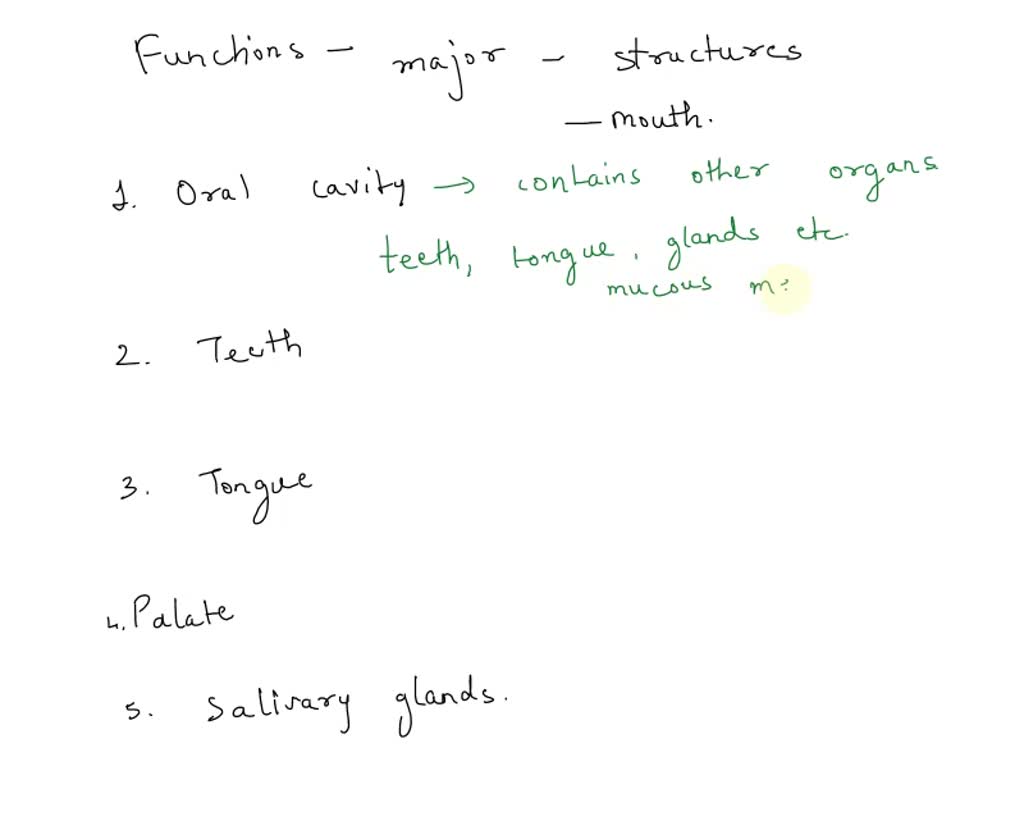 Functions - major - structures
- mouth.
1. Oral cavity → contains other organs
teeth, tongue, glands etc.
mucous
2. Teeth
3. Tongue
4. Palate
5. Salivary glands.